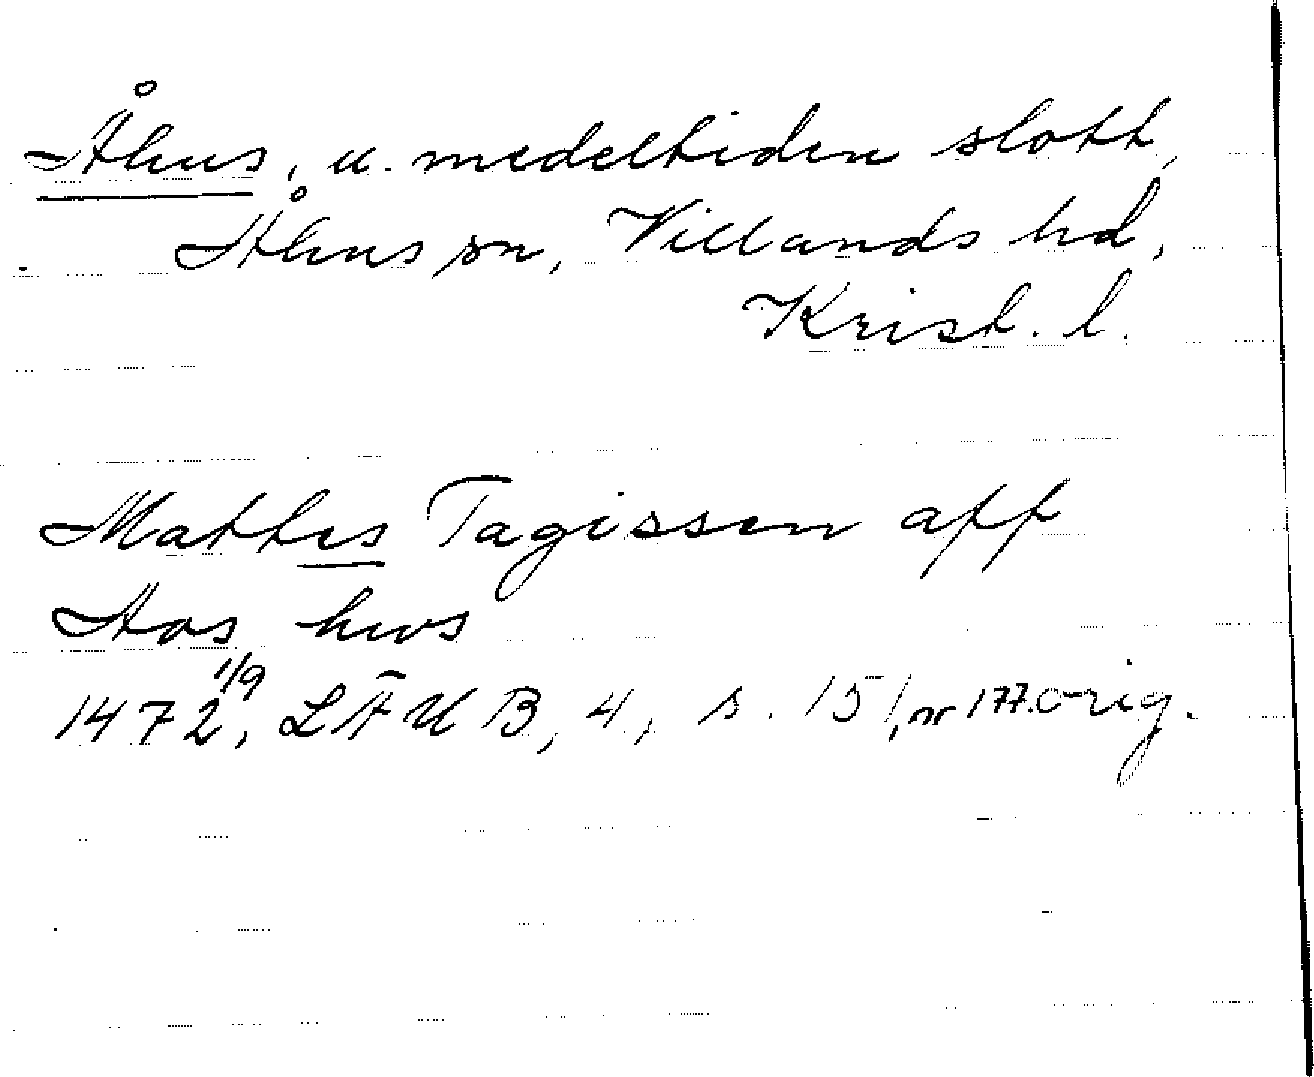 Åhus, u. medeltiden slott,
Åhus sn, Villands hd,
Krist. l.
Mattes Tagissen aff
Aos hws
1472 1/9, LÄUB, 4, s. 151, nr 177. orig.